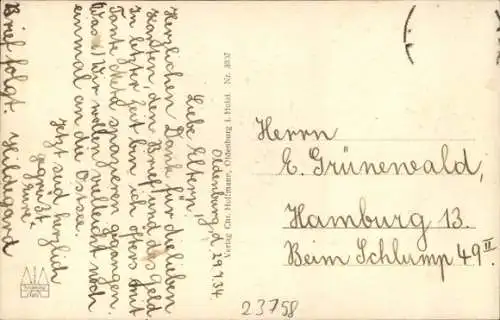 Oldenburg, d. 29.9.34.
Liebe Eltern!
Herzlichen Dank für die lieben
Karten, den Brief und das Geld
In letzter Zeit bin ich öfters mit
Tante Meta spazieren gegangen.
Was! Wir wollen vielleicht noch
einmal an die Ostsee.
Jetzt seid herzlich
gegrüßt
Eure
Hildegard
Brief folgt.
Verlag Chr. Hoffmann, Oldenburg i. Holst. Nr.
Herrn
E. Grünewald,
Hamburg 13.
Beim Schlump 49 II
23758